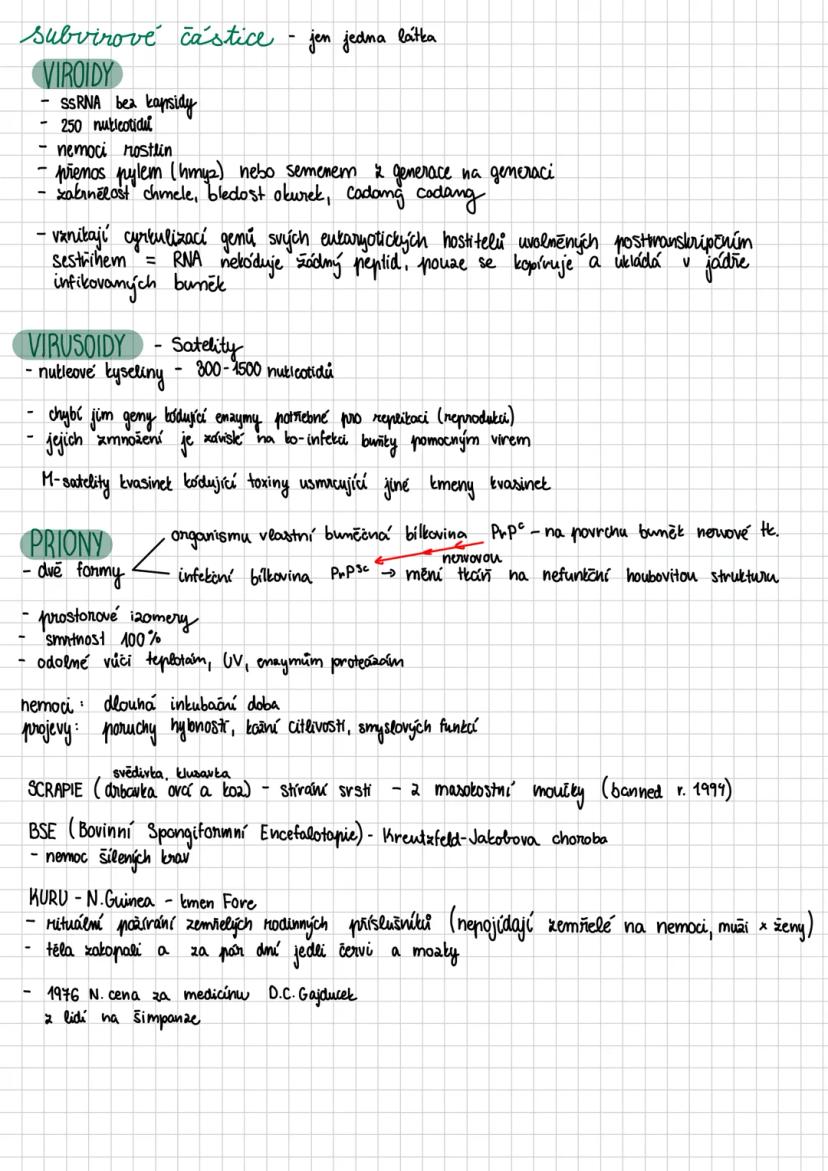 subvirové částice - jen jedna látka
VIROIDY
- ssRNA bez kapsidy
- 250 nukleotidů
- nemoci rostlin
- přenos pylem (hmyz) nebo semenem z generace na generaci
- zakrnělost chmele, bledost okurek, Cadang cadang
- vznikají cyrkulizací genů svých eukaryotických hostitelů uvolněných posttranskripčním
sestřihem = RNA nekóduje žádný peptid, pouze se kopíruje a ukládá v jádře
infikovaných buněk
VIRUSOIDY - Satelity
- nukleové kyseliny - 300-1500 nukleotidů
- chybí jim geny kódující enzymy potřebné pro replikaci (reprodukci)
- jejich zmnožení je závislé na ko-infekci buňky pomocným virem
M-satelity kvasinek kódující toxiny usmrcující jiné kmeny kvasinek
PRIONY
- dvě formy
organismu vlastní buněčná bílkovina PrPᶜ - na povrchu buněk nervové tk.
infekční bílkovina PrPˢᶜ → mění nervovou tkáň na nefunkční houbovitou strukturu
- prostorové izomery
- smrtnost 100%
- odolné vůči teplotám, UV, enzymům proteázám
nemoci: dlouhá inkubační doba
projevy: poruchy hybnosti, kožní citlivosti, smyslových funkcí
svědivka, klusavka
SCRAPIE (drbavka ovcí a koz) - stírání srsti - z masokostní moučky (banned r. 1994)
BSE (Bovinní Spongiformní Encefalotapie) - Kreutzfeld-Jakobova choroba
- nemoc šílených krav
KURU - N.Guinea - kmen Fore
- rituální požívání zemřelých rodinných příslušníků (nepojídají zemřelé na nemoci, muži x ženy)
- těla zakopali a za pár dní jedli červi a mozky
- 1976 N. cena za medicínu D.C. Gajducek
z lidí na šimpanze